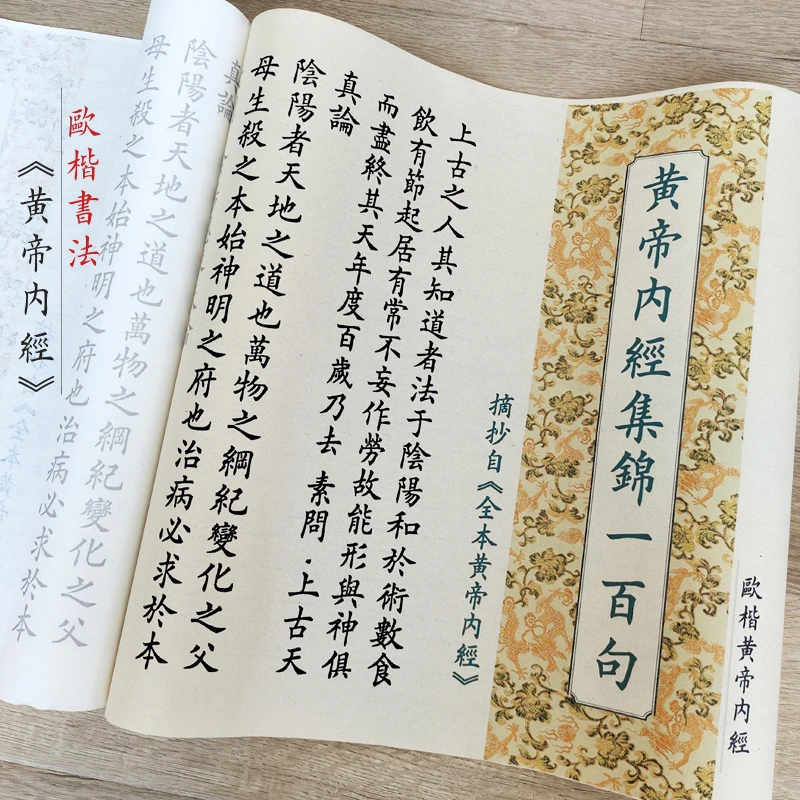 歐楷黄帝内經
黄帝内經集錦一百句
摘抄自《全本黄帝内經》
上古之人其知道者法于陰陽和於術數食
飲有節起居有常不妄作勞故能形與神俱
而盡終其天年度百歲乃去 素問·上古天
真論
陰陽者天地之道也萬物之綱紀變化之父
母生殺之本始神明之府也治病必求於本
真論
陰陽者天地之道也萬物之綱紀變化之父
母生殺之本始神明之府也治病必求於本
歐楷書法
《黄帝内經》